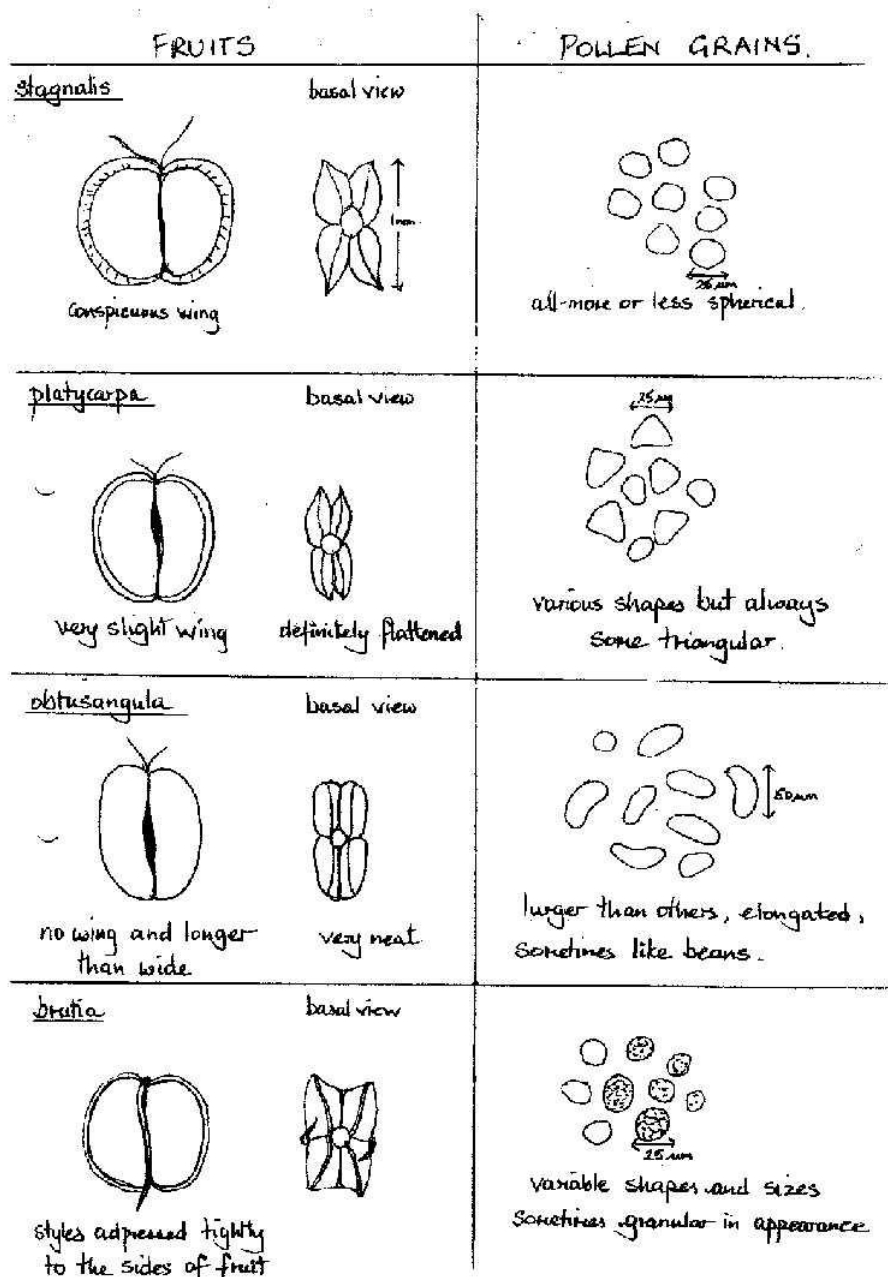 FRUITS
POLLEN GRAINS.
stagnalis
basal view
1mm
conspicuous wing
25 µm
all more or less spherical.
platycarpa
basal view
25 µm
very slight wing
definitely flattened
various shapes but always
some triangular.
obtusangula
basal view
50 µm
no wing and longer
than wide
very neat
larger than others, elongated,
sometimes like beans.
brutia
basal view
25 µm
styles adpressed tightly
to the sides of fruit
variable shapes and sizes
sometimes granular in appearance